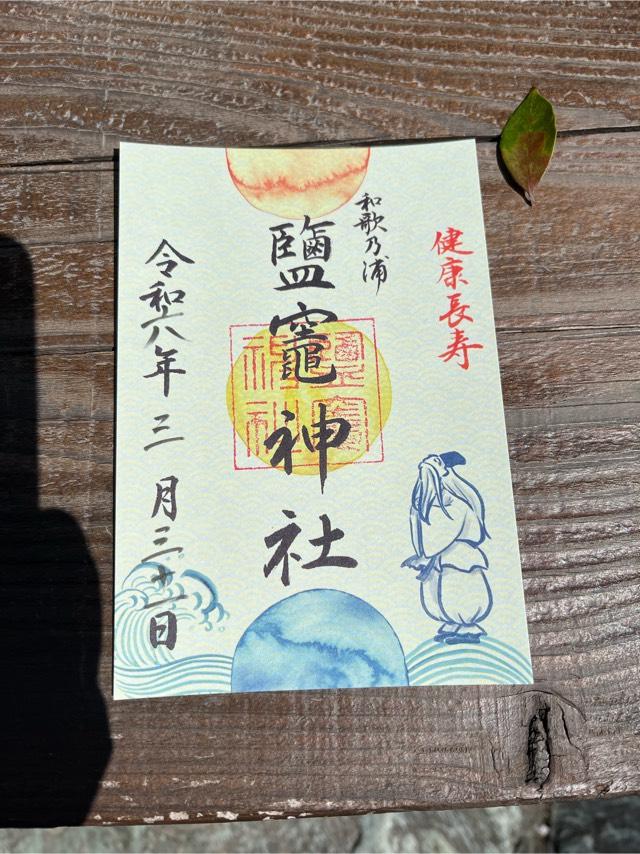 健康長寿
和歌乃浦
鹽竈神社
令和六年三月三十一日